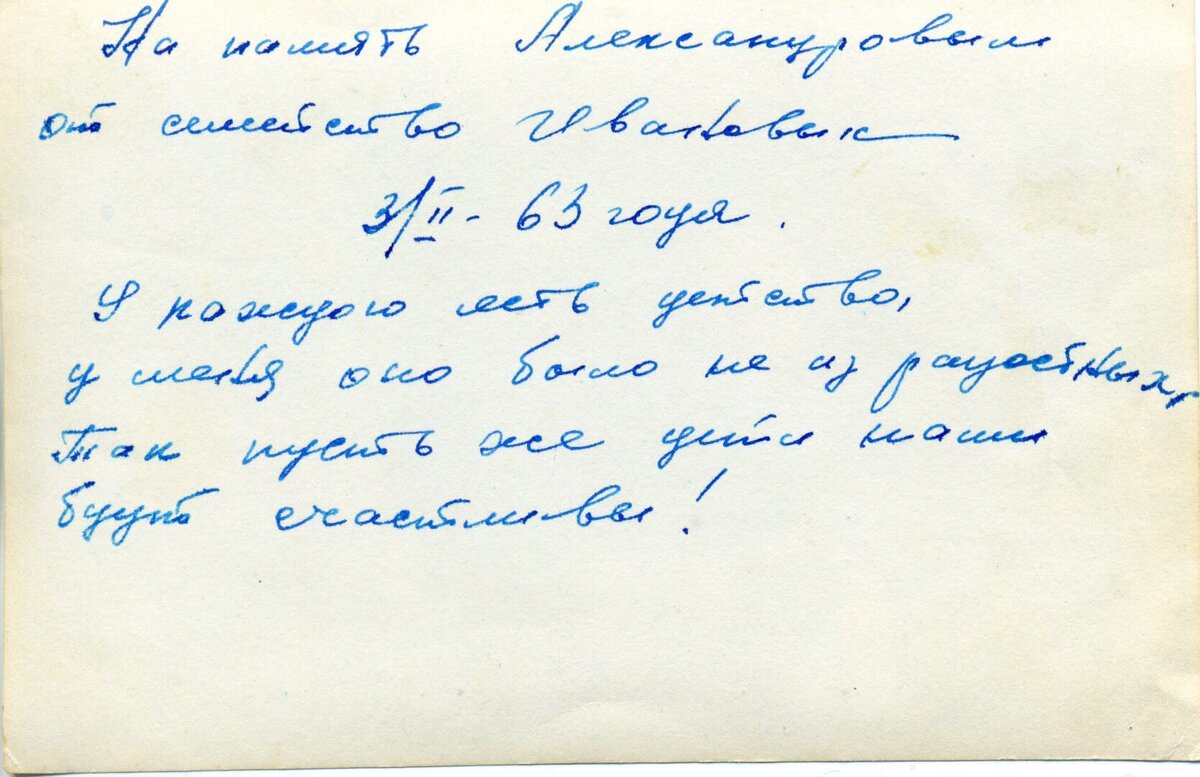 На память Александровым
от семейство Ивановых
3/II - 63 года.
У каждого есть детство,
у меня оно было не из радостных,
Так пусть же дети наши
будут счастливы!